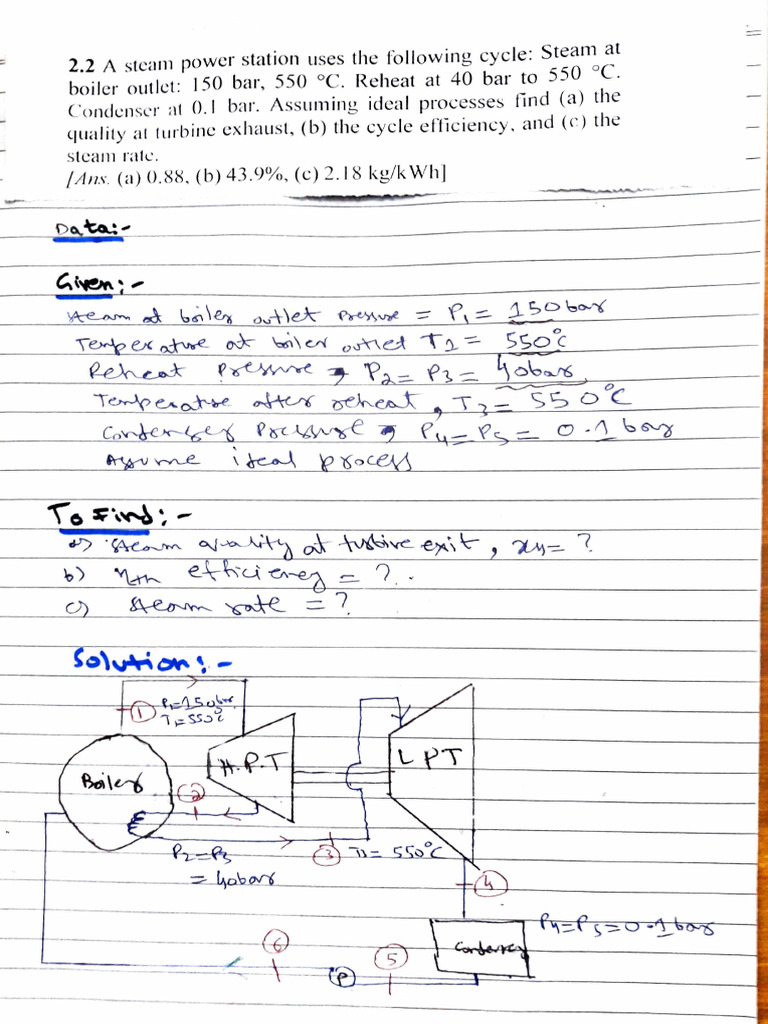 2.2 A steam power station uses the following cycle: Steam at
boiler outlet: 150 bar, 550 °C. Reheat at 40 bar to 550 °C.
Condenser at 0.1 bar. Assuming ideal processes find (a) the
quality at turbine exhaust, (b) the cycle efficiency, and (c) the
steam rate.
[Ans. (a) 0.88, (b) 43.9%, (c) 2.18 kg/kWh]
Data:-
Given:-
steam at boiler outlet pressure = P1 = 150 bar
Temperature at boiler outlet T1 = 550°C
Reheat pressure → P2 = P3 = 40bar
Temperature after reheat, T3 = 550°C
Condenser Pressure → P4 = P5 = 0.1 bar
Assume ideal process
To Find:-
a) steam quality at turbine exit, x4 = ?
b) ηth efficiency = ?.
c) steam rate = ?
Solution:-
1 P1=150bar
T1=550°C
H.P.T
LPT
Boiler
2
P2=P3
= 40bar
3 T3= 550°C
4
P4=P5=0.1bar
Condenser
6
5
P